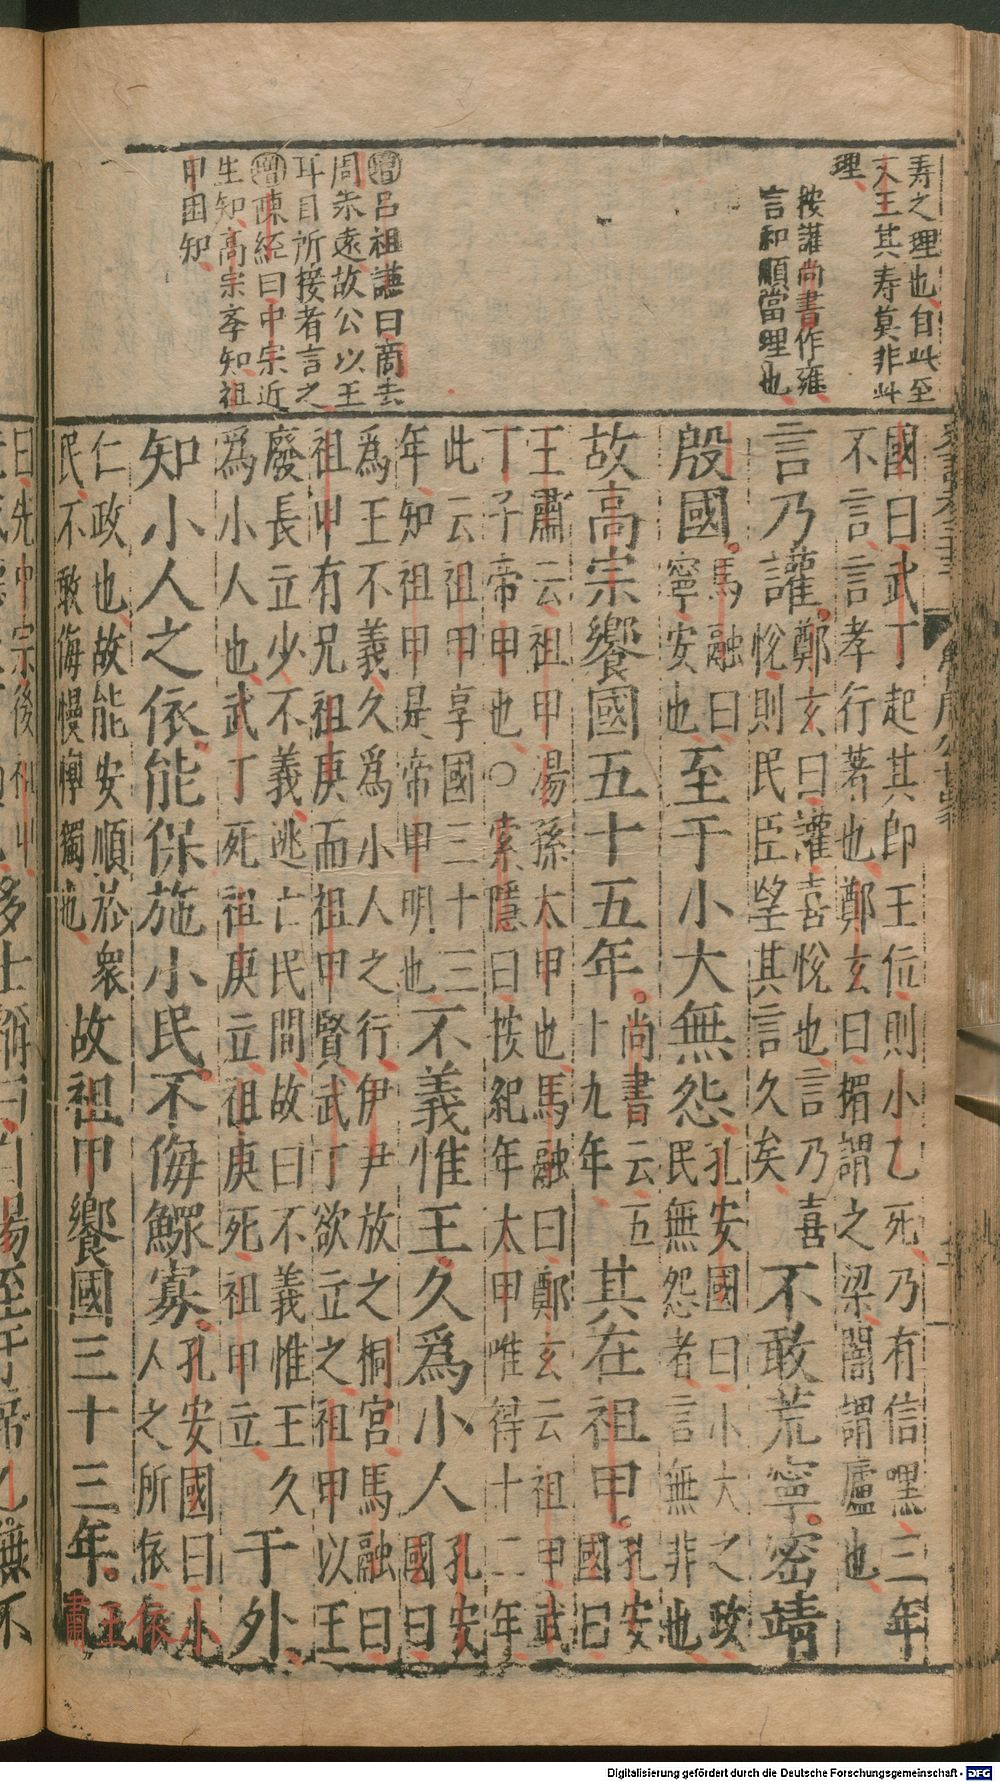 寿之理也自此至
文王其寿莫非此
理
按讙尚書作雍
言和順當理也
增呂祖謙曰商去
周未遠故公以王
耳目所接者言之
增陳經曰中宗近
生知高宗孝知祖
甲困知
國曰武丁起其即王位則小乙死乃有信嘿三年
不言言孝行著也鄭玄曰楣謂之梁闇謂廬也
言乃讙。鄭玄曰讙喜悅也言乃喜
悅則民臣望其言久矣不敢荒寧。密靖
殷國。馬融曰
寧安也至于小大無怨孔安國曰小大之政
民無怨者言無非也
故高宗饗國五十五年。尚書云五
十九年其在祖甲。孔安
國曰
王肅云祖甲湯孫太甲也馬融曰鄭玄云祖甲武
丁子帝甲也○索隱曰按紀年太甲唯得十二年
此云祖甲享國三十三
年知祖甲是帝甲明也不義惟王久爲小人孔安
國曰
爲王不義久爲小人之行伊尹放之桐宮馬融曰
祖甲有兄祖庚而祖甲賢武丁欲立之祖甲以王
廢長立少不義逃亡民間故曰不義惟王久
爲小人也武丁死祖庚立祖庚死祖甲立于外
知小人之依能保施小民不侮鰥寡孔安國曰小
人之所依依
仁政也故能安順於衆
民不敢侮慢惸獨也故祖甲饗國三十三年。王
肅
曰先中宗後祖甲
多士稱曰自湯至于帝乙無不
Digitalisierung gefördert durch die Deutsche Forschungsgemeinschaft - DFG